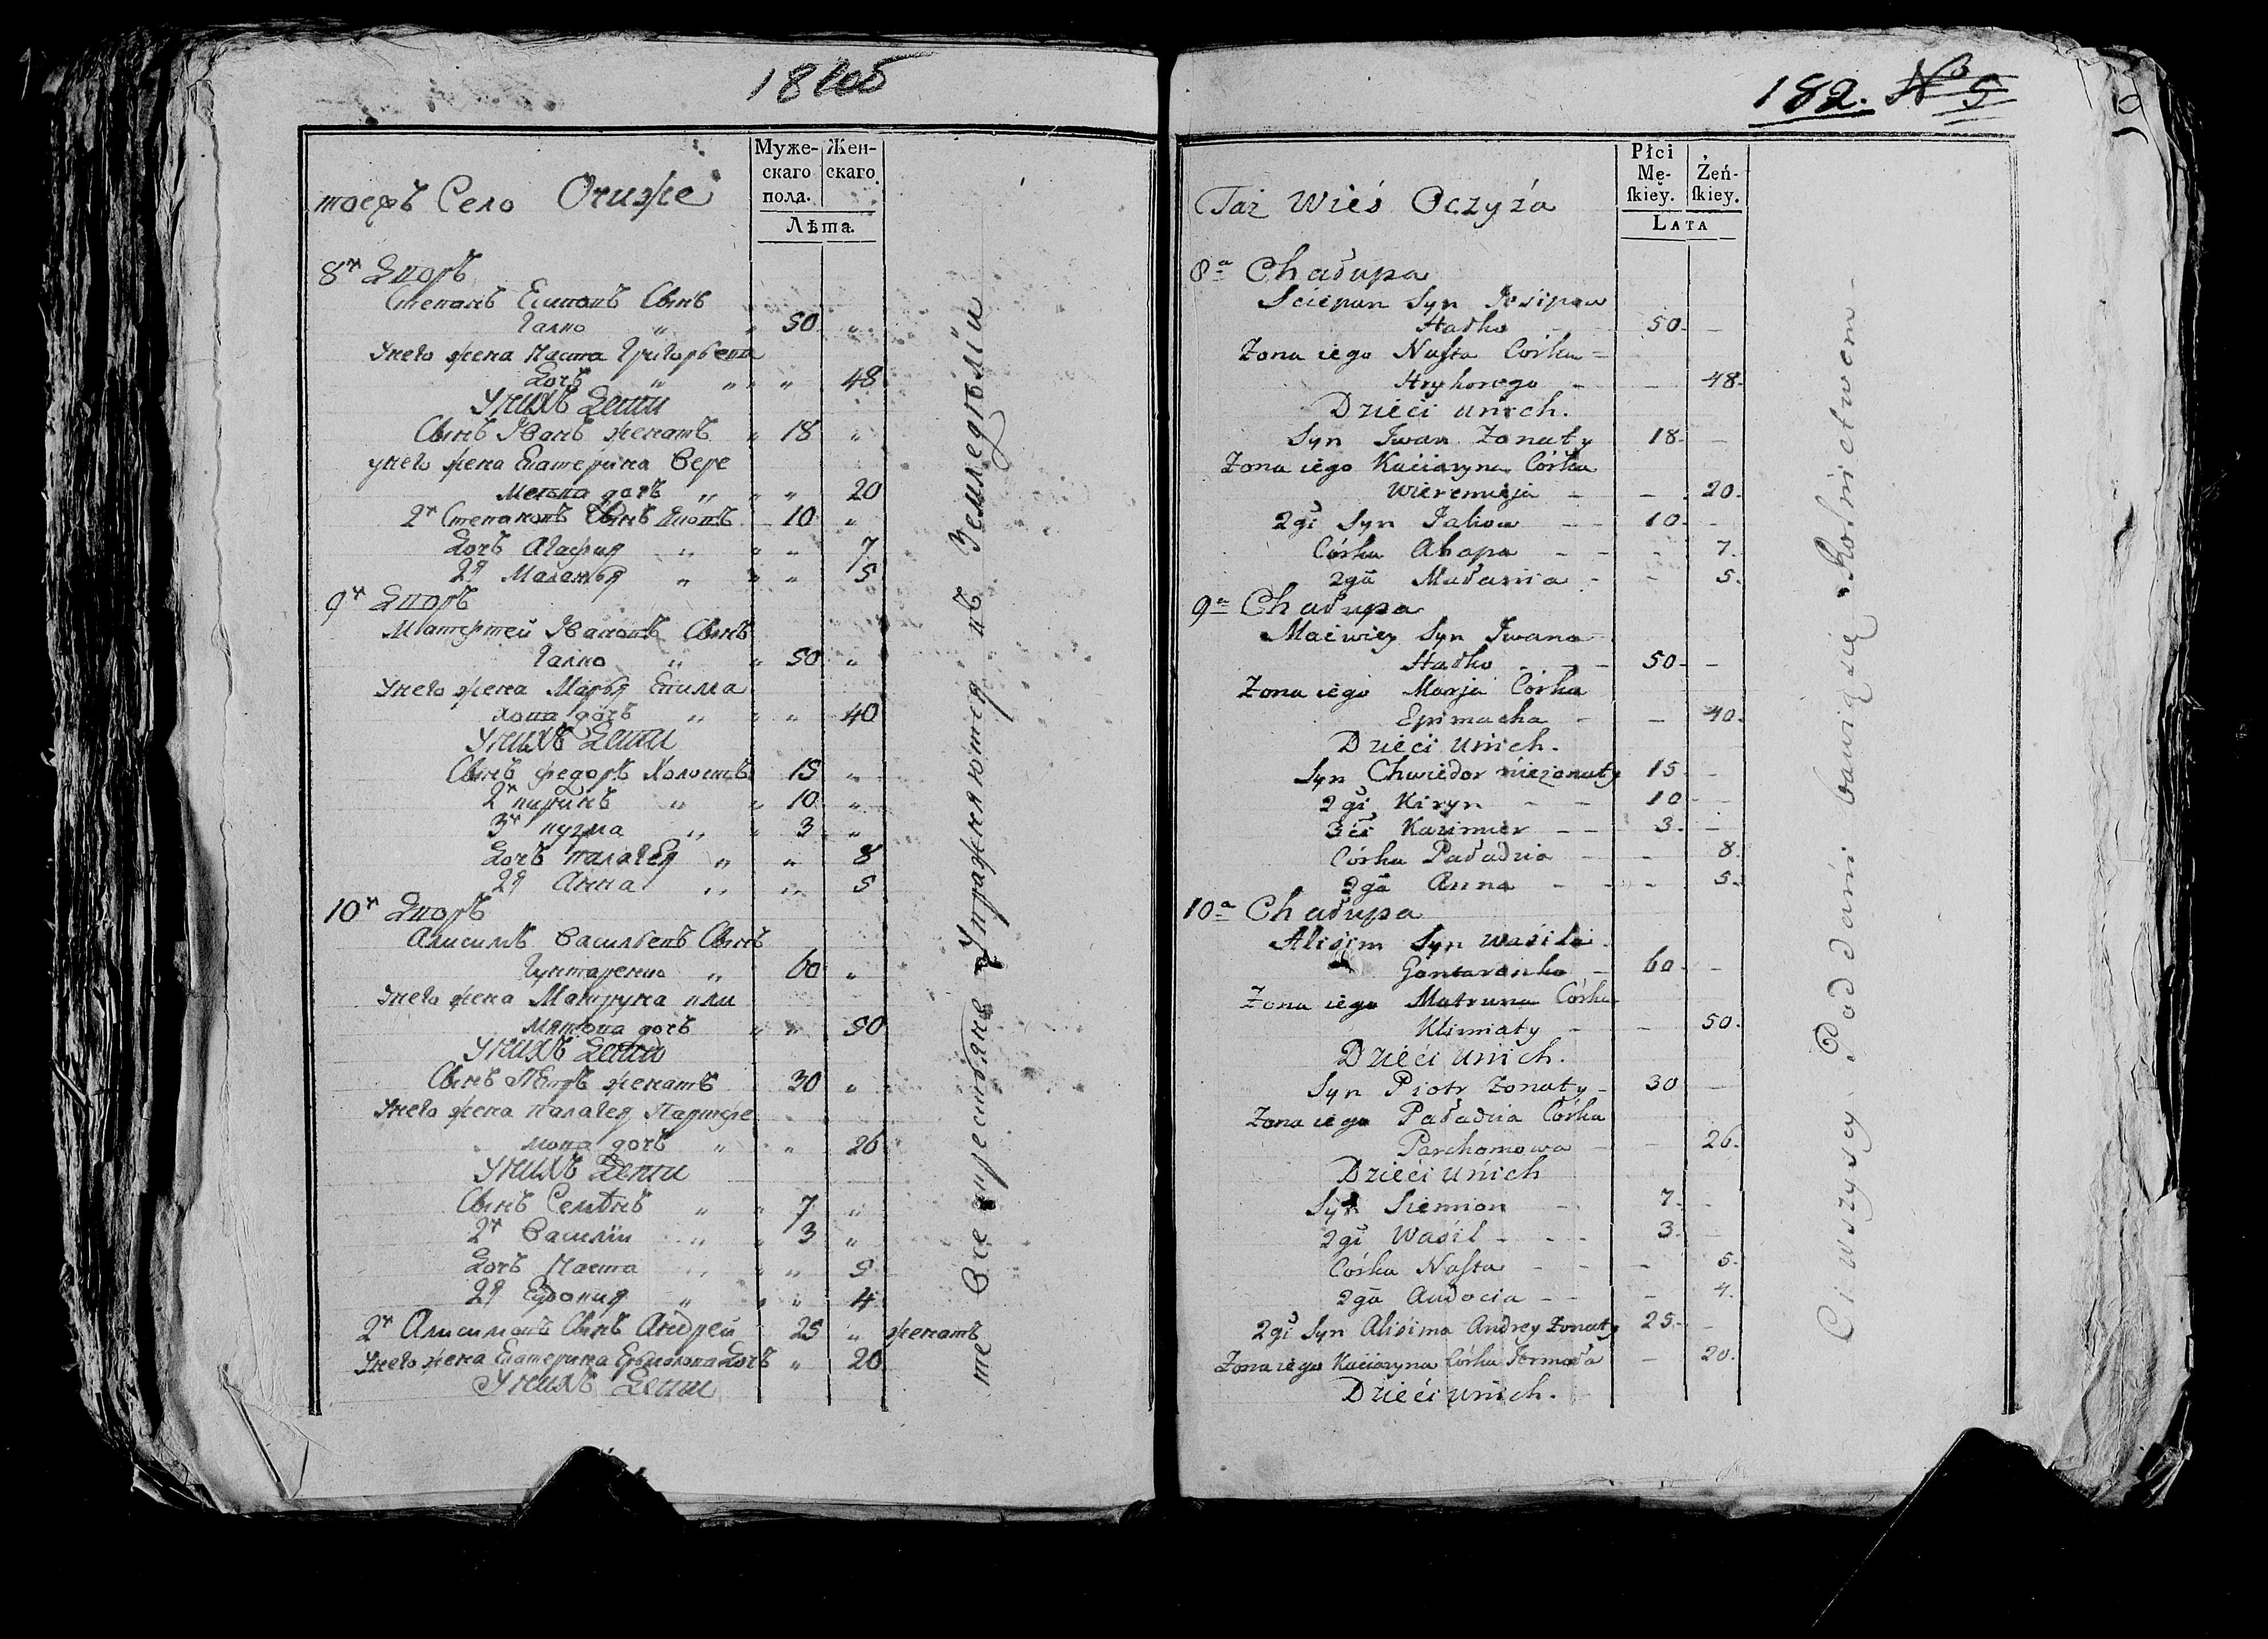 18
Муже-
скаго
пола.
Жен-
скаго
Лѣта.
тоежъ Село Очиже
8й Дворъ
Степанъ Есиповъ Сынъ
Галко " " 50 "
Унего жена Наста Григорьева
Дочь " " " 48
Унихъ Дети
Сынъ Иванъ женатъ " 18 "
унего жена Екатерина Вере
меева дочь " " " 20
2й Степановъ Сынъ Яковъ 10 "
Дочь Агафия " " " 7
2я Маланья " " " 5
9й Дворъ
Матфтей Ивановъ Сынъ
Галко " " 50 "
Унего жена Марья Епима
хова дочь " " " 40
Унихъ Дети
Сынъ Федоръ Холостъ 15 "
2й киринъ " " 10 "
3й кузма " " 3 "
Дочь палагея " " 8
2я Анна " " 5
10й Дворъ
Алисимъ Васильевъ Сынъ
Гунтаренко " 60 "
Унего жена Матруна кли
мятова дочь " " 50
Унихъ Дети
Сынъ Петръ женатъ 30 "
Унего жена палагея Пархе
мова дочь " " 26
Унихъ Дети
Сынъ Семѣнъ " " 7 "
2й Василiи " " 3 "
Дочь Наста " " " 5
2я " " " 4
2й Алисимовъ Сынъ Андрей 25 " женатъ
Унего жена Екатерина Ермолова Дочь " 20
Унихъ Дети
те Все крестьяне Упражняются въ Земледѣлiи
182. № 9
Płci
Mę-
skiey.
Żeń-
skiey.
LATA
Taż Wieś Oczyża
8a Chałupa
Sciepan Syn Josipow
Hałko 50 -
Zona iego Nasta Corka -
Hryhorego - - 48.
Dzieci unich.
Syn Jwan Zonaty 18. -
Zona iego Kaciaryna Córka
Wieremieja - - 20.
2gi Syn Jakow - - 10. -
Córka Ahapa - - - 7.
2ga Małania - - 5.
9a Chałupa
Maćwiey Syn Jwana
Hałko - - - 50. -
Zona iego Marja Córka
Epimacha - - 40.
Dzieci unich.
Syn Chwiedor niezonaty 15. -
2gi Kiryn - - 10 - -
3ci Kazimier - - 3. -
Córka Paładzia - - 8.
2ga Anna - - - 5.
10a Chałupa
Alisim Syn Wasila
Gontaronko - 60. -
Zona iego Matruna Córka
Klimiaty - - 50.
Dzieci unich.
Syn Piotr Zonaty - 30 -
Zona iego Paładzia Córka
Parchomowa - - 26.
Dzieci unich
Syn Siemion - 7. -
2gi Wasil - - - 3. -
Córka Nasta - - - 5.
2ga Audocia - - - 4.
2gi Syn Alisima Andrey Zonaty 25. -
Zona iego Kaciaryna Córka Jermoła - 20.
Dzieci unich.
Ci wszyscy Poddani bawią się Rolnictwem -